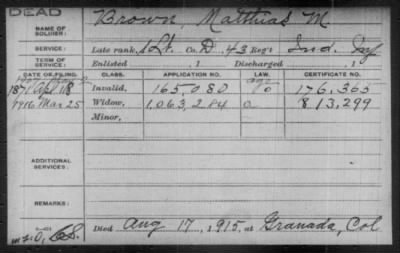 DEAD
NAME OF SOLDIER: Brown, Matthias M.
SERVICE: Late rank, 1 Lt. Co. D, 43 Reg't Ind. Inf
TERM OF SERVICE: Enlisted , 1 Discharged , 1
DATE OF FILING. CLASS. APPLICATION NO. LAW. CERTIFICATE NO.
Invalid, 165,080 176,365
1916 Mar 25 Widow, 1,063,284 813,299
Minor,
ADDITIONAL SERVICES:
REMARKS:
Died Aug 17, 1915, at Granada, Col